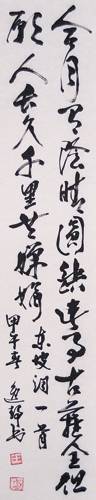 月有陰晴圓缺此事古難全但
願人長久千里共嬋娟 東坡詞一首
甲午春